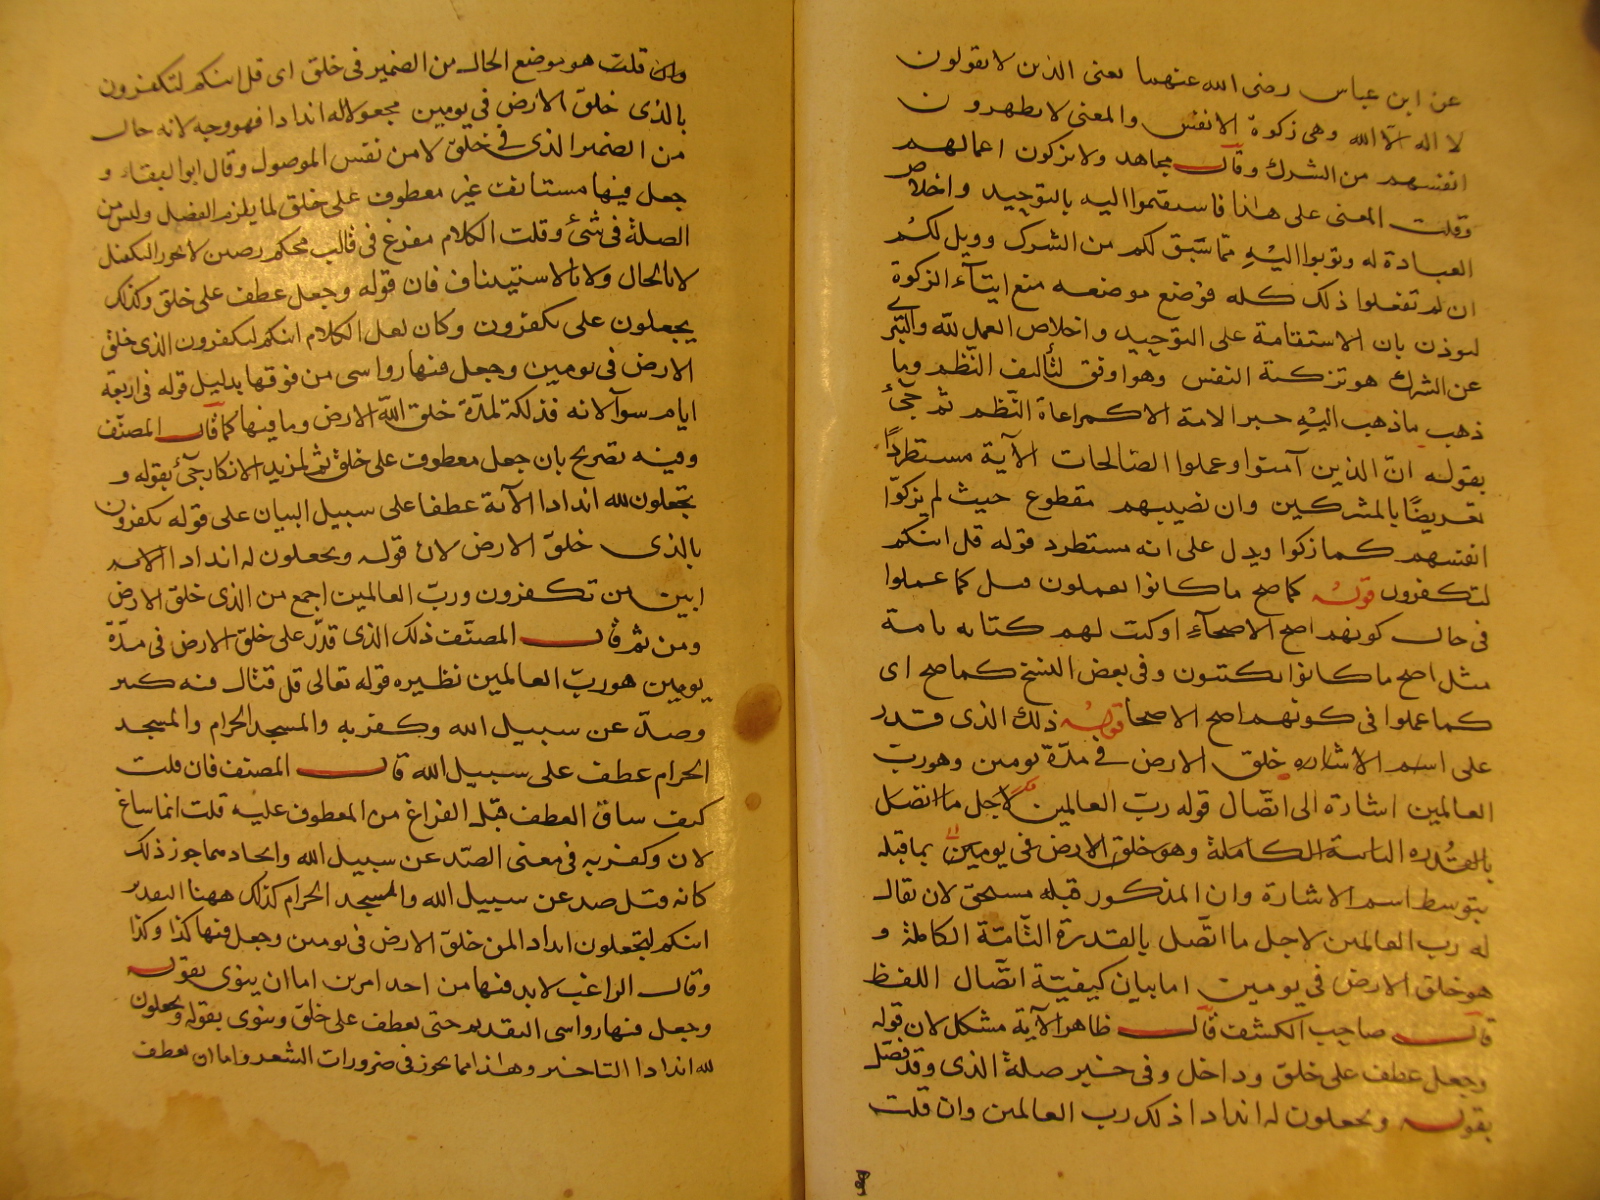 عن ابن عباس رضى الله عنهما يعنى الذين لا يقولون
لا اله الا الله وهى زكوة الانفس والمعنى لا يطهرون
انفسهم من الشرك وقال مجاهد ولا يزكون اعمالهم
وقلت المعنى على هذا فاستقيموا اليه بالتوحيد واخلاص
العبادة له وتوبوا اليه مما سبق لكم من الشرك وويل لكم
ان لم تفعلوا ذلك كله فوضع موضعه منع ايتاء الزكوة
ليوذن بان الاستقامة على التوحيد واخلاص العمل لله والتبرى
عن الشرك هو تزكية النفس وهو اوفق لتأليف النظم وما
ذهب ما ذهب اليه حبر الامة الا كمراعاة النظم ثم جئ
بقوله ان الذين آمنوا وعملوا الصالحات الآية مستطردا
تعريضا بالمشركين وان نصيبهم مقطوع حيث لم يزكوا
انفسهم كما زكوا ويدل على انه مستطرد قوله قل ائنكم
لتكفرون قوله كما صح ما كانوا يعملون قيل كما عملوا
فى حال كونهم اصح الاصحاء او كتب لهم كتابه تامة
مثل اصح ما كانوا يكتبون وفى بعض النسخ كما صح اى
كما عملوا فى كونهم اصح الاصحا قوله ذلك الذى قدر
على اسم الاشاره خلق الارض فى مدة يومين وهو رب
العالمين اشارة الى اتصال قوله رب العالمين لاجل ما اتصل
بالقدره التامة الكاملة وهو خلق الارض فى يومين بما قبله
بتوسط اسم الاشارة وان المذكور قبله مستحق لان يقال
له رب العالمين لاجل ما اتصل بالقدرة التامة الكاملة و
هو خلق الارض فى يومين اما بيان كيفية اتصال اللفظ
قال صاحب الكشف قال ظاهر الآية مشكل لان قوله
وجعل عطف على خلق وداخل وفى حيز صلة الذى وقد فصل
بقوله وتجعلون له اندادا ذلك رب العالمين وان قلت
وان قلت هو موضع الحال من الضمير فى خلق اى قل ائنكم لتكفرون
بالذى خلق الارض فى يومين مجعولا له اندادا فهو وجه لانه حال
من الضمير الذى فى خلق لا من نفس الموصول وقال ابو البقاء و
جعل فيها مستانف غير معطوف على خلق لما يلزم الفصل وليس من
الصلة فى شئ وقلت الكلام مفرغ فى قالب محكم رصين لا يجوز التكفل
لا بالحال ولا بالاستيناف فان قوله وجعل عطف على خلق وكذلك
يجعلون على تكفرون وكان لعل الكلام ائنكم لتكفرون الذى خلق
الارض فى يومين وجعل فيها رواسى من فوقها بدليل قوله فى اربعة
ايام سوآلانه فذلكة لمدة خلق الله الارض وما فيها كما قال المصنف
وفيه تصريح بان جعل معطوف على خلق ثم لمزيد الانكار جئ بقوله و
تجعلون لله اندادا الآية عطفا على سبيل البيان على قوله تكفرون
بالذى خلق الارض لان قوله وتجعلون له اندادا الآية
ابين من تكفرون ورب العالمين اجمع من الذى خلق الارض
ومن ثم قال المصنف ذلك الذى قدر على خلق الارض فى مدة
يومين هو رب العالمين نظيره قوله تعالى قل قتال فيه كبير
وصد عن سبيل الله وكفر به والمسجد الحرام والمسجد
الحرام عطف على سبيل الله قال المصنف فان قلت
كيف ساق العطف قبل الفراغ من المعطوف عليه قلت انما ساغ
لان وكفر به فى معنى الصد عن سبيل الله واتحاد مما جوز ذلك
كانه قيل صد عن سبيل الله والمسجد الحرام كذلك ههنا التقدير
ائنكم لتجعلون اندادا لمن خلق الارض فى يومين وجعل فيها كذا وكذا
وقال الراغب لا بد فيها من احد امرين اما ان ينوى بقوله
وجعل فيها رواسى التقديم حتى يعطف على خلق وينوى بقوله وتجعلون
لله اندادا التاخير وهذا مما يجوز فى ضرورات الشعر واما ان يعطف